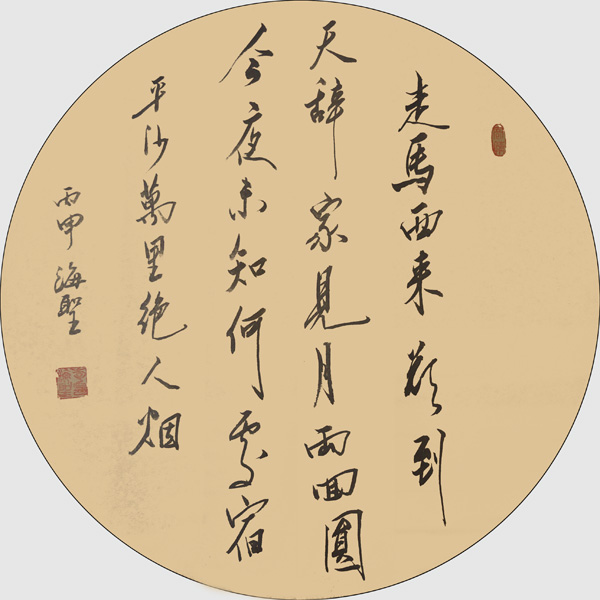 走馬西来欲到
天辞家見月兩囬圓
今夜未知何處宿
平沙萬里绝人烟
丙申 海聖